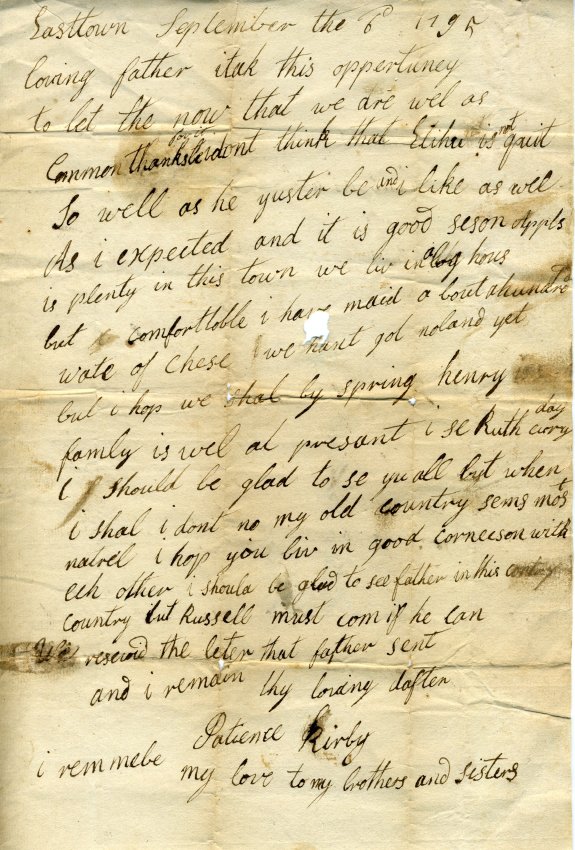 Easttown September the 6th 1795
loving father itak this oppertuney
to let the now that we are wel as
Common thanks be dont think that Elihu is not quit
So well as he yuster be and i like as wel
As i expected and it is good seson Appls
is plenty in this town we liv in a log hous
but comforttoble i have maid a bout ahundred
wate of Chese we hant got noland yet
but i hop we shal by spring henry
family is wel at presant i se Ruth evry day
i should be glad to se yu all but when
i shal i dont no my old country sems most
natrel i hop you liv in good corneeson with
ech other i should be glad to see father in this contry
Country but Russell must com if he can
We reseivd the leter that father sent
and i remain thy loving dafter
Patience Kirby
i remmebe my love to my brothers and sisters